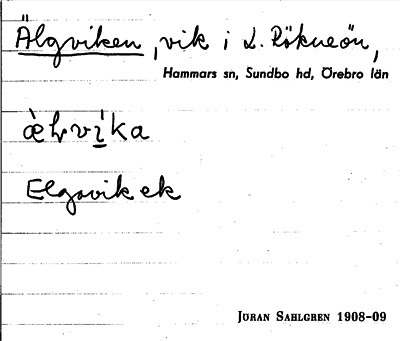 Älgviken, vik i L. Rökneön,
Hammars sn, Sundbo hd, Örebro län
Elgavik ek
Jöran Sahlgren 1908-09